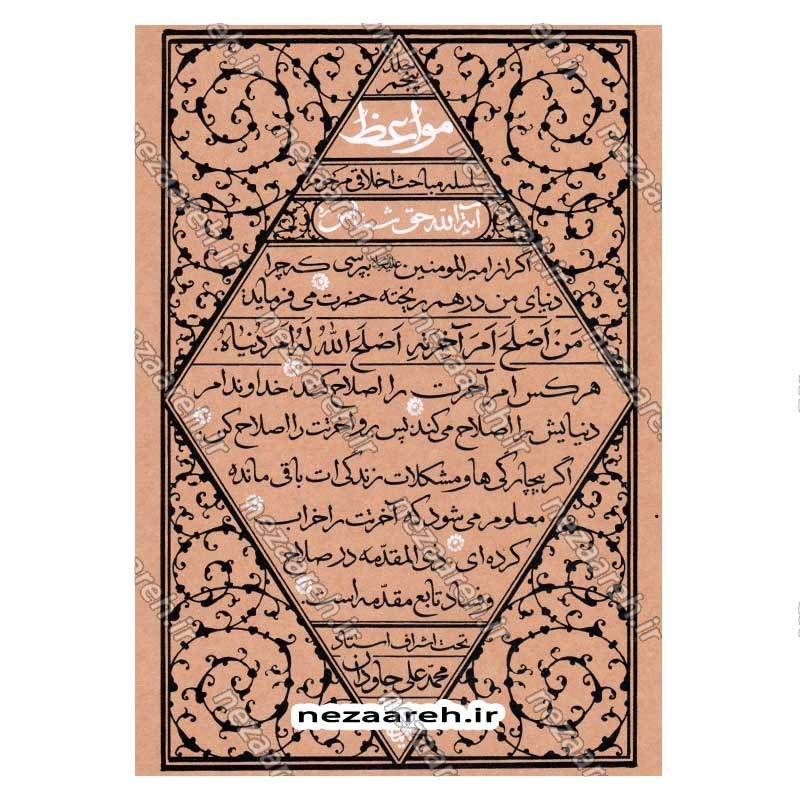 جلد
پنجم
مواعظ
سلسله مباحث اخلاقی مرحوم
آیة الله حق شناس
اگر از امیرالمومنین علیه‌السلام بپرسی که چرا
دنیای من درهم ریخته حضرت می فرماید:
مَنْ اَصْلَحَ اَمرَ آخرتِهِ اَصْلَحَ اللهُ لَهُ اَمرَ دُنیاهُ.
هر کس امر آخرت را اصلاح کند، خداوند امر
دنیایش را اصلاح می کند؛ پس برو آخرتت را اصلاح کن.
اگر بیچارگی ها و مشکلات زندگی ات باقی مانده
معلوم می شود که آخرتت را خراب
کرده ای. ذی المقدّمه در صلاح
و فساد تابع مقدّمه است.
تحت اشراف استاد
محمّد علی جاودان
nezaareh.ir